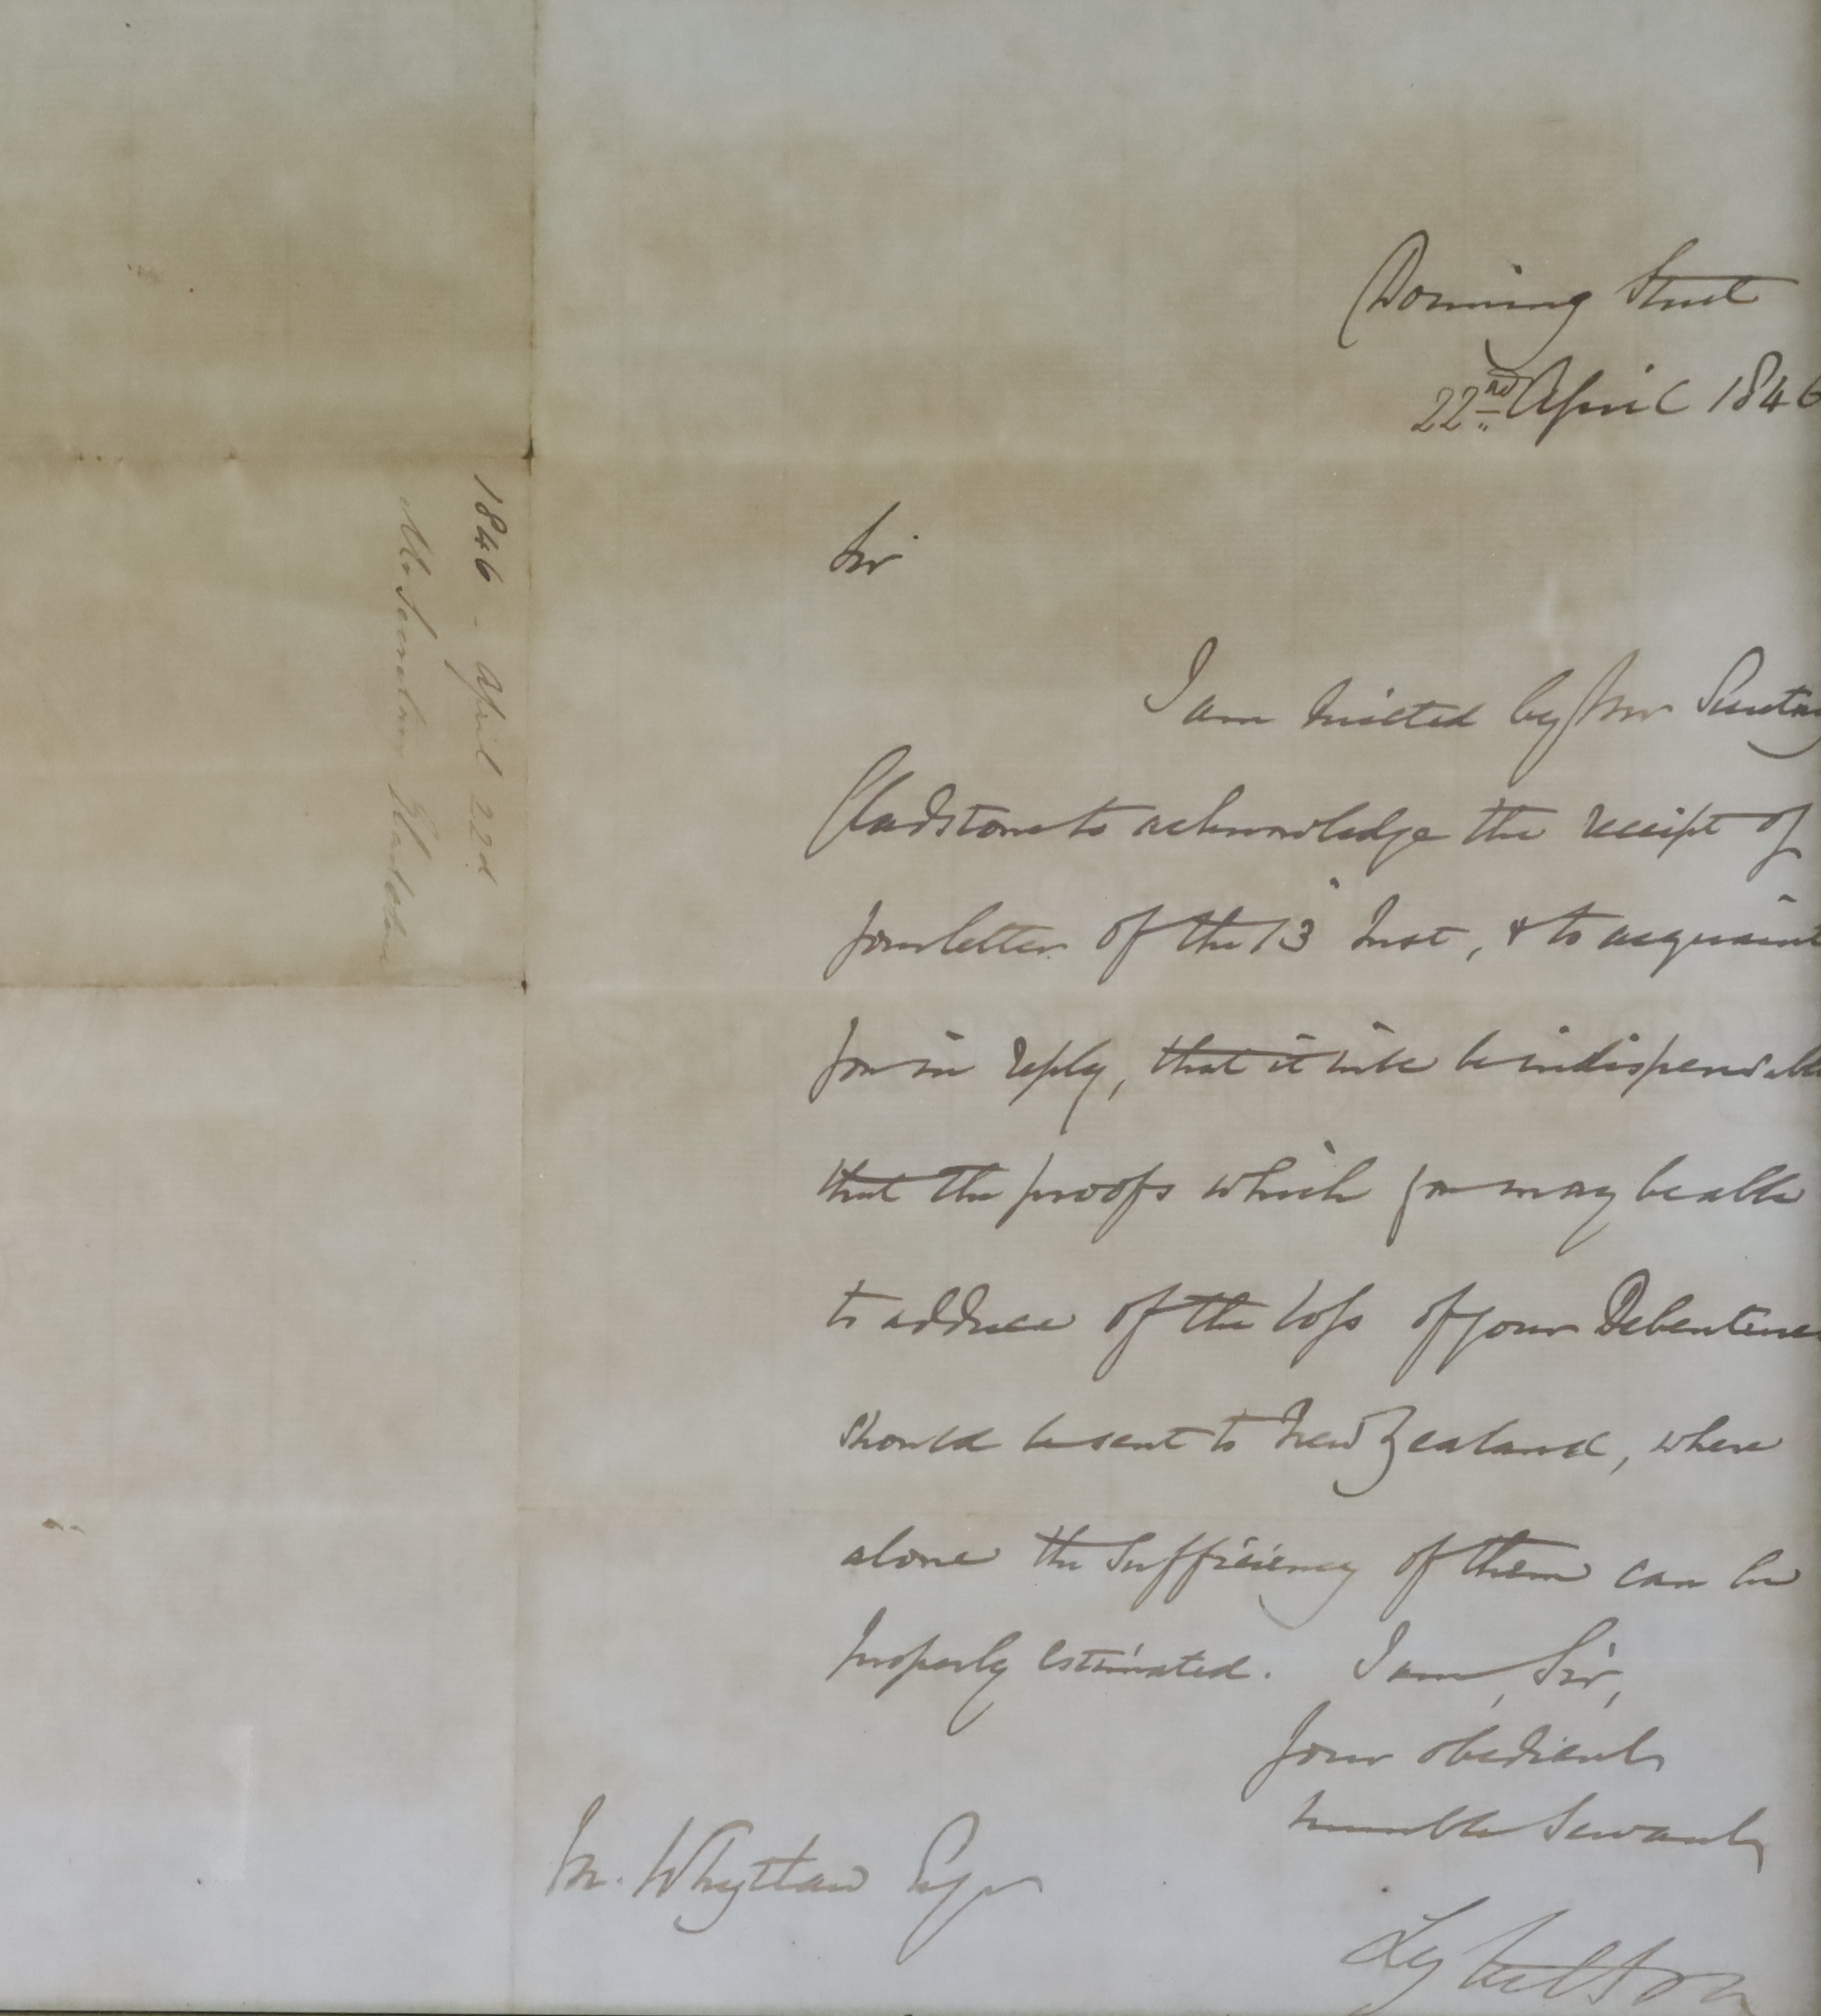 Downing Street
22nd April 1846
Sir
I am directed by Mr Secretary
Gladstone to acknowledge the receipt of
your letter of the 13 Inst, & to acquaint
you in reply, that it will be indispensable
that the proofs which you may be able
to adduce of the loss of your Debentures
should be sent to New Zealand, where
alone the sufficiency of them can be
properly estimated. I am, Sir,
Your obedient
humble Servant
Lyttelton
M. Whytlaw Esqr
1846 - April 22d
Mr Secretary Gladstone